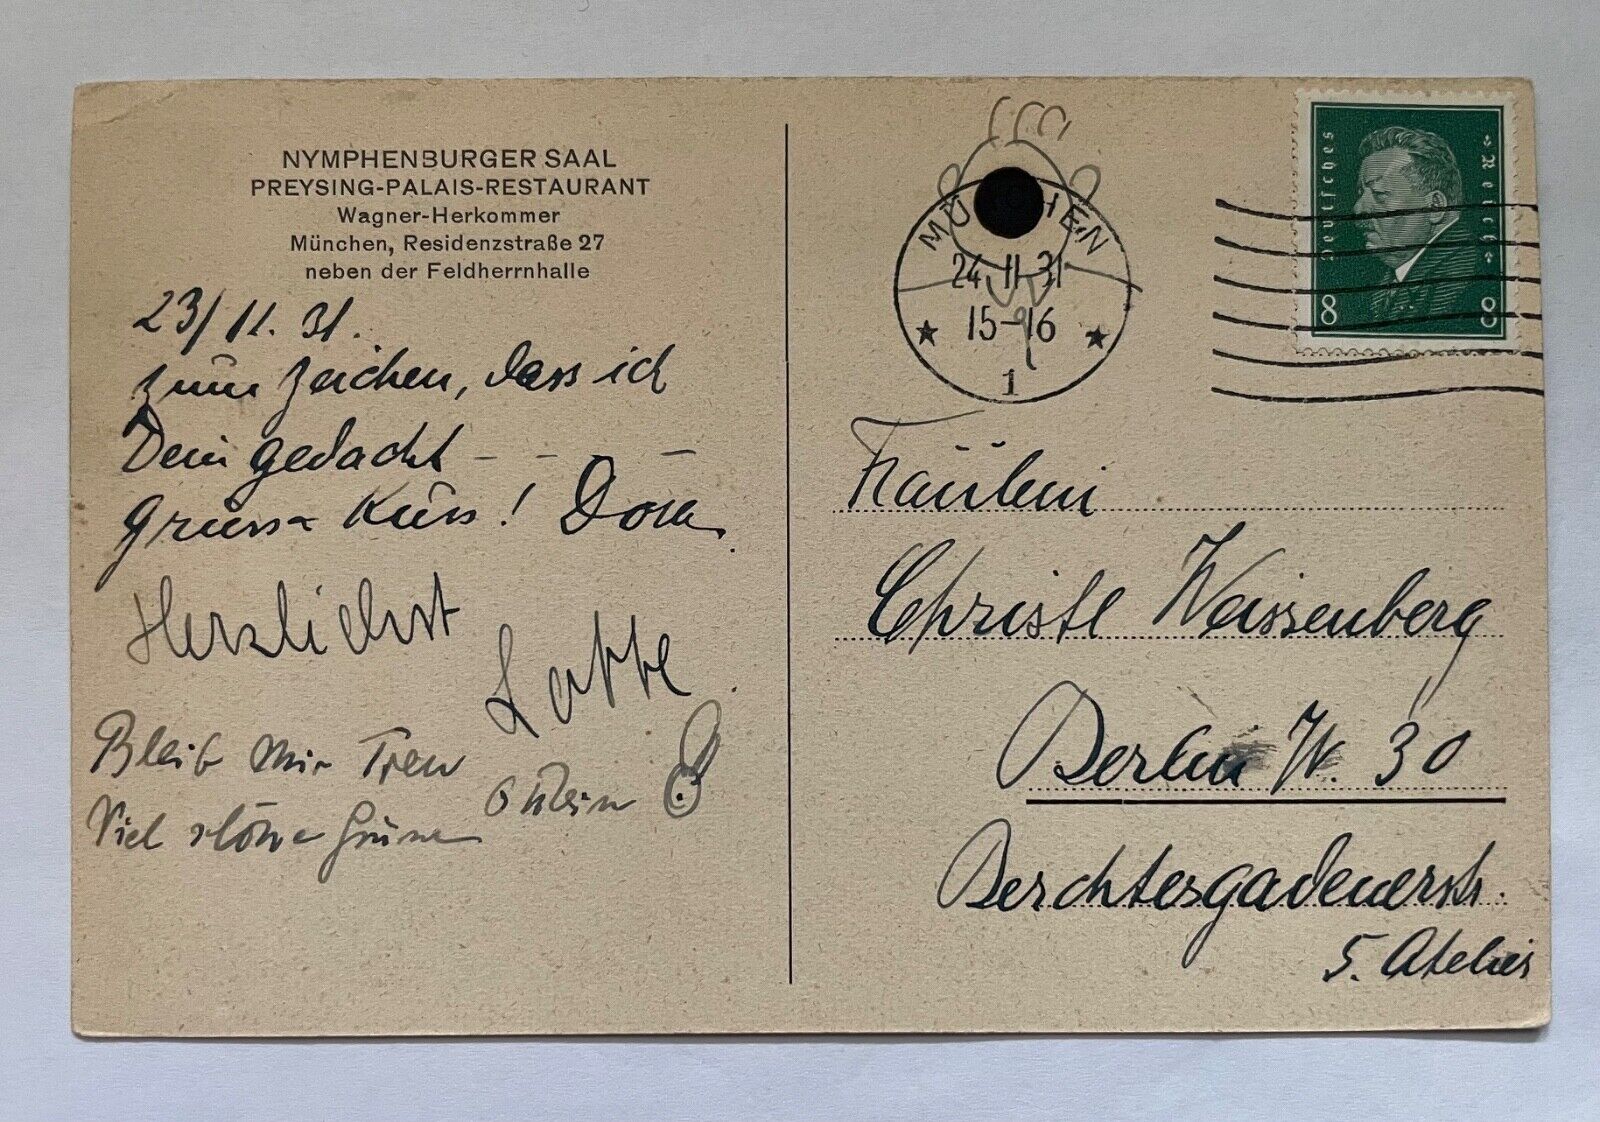 NYMPHENBURGER SAAL
PREYSING-PALAIS-RESTAURANT
Wagner-Herkommer
München, Residenzstraße 27
neben der Feldherrnhalle
23/11.31.
zum Zeichen, dass ich
Dein gedacht - - - -
Gruss + Kuss! Dora.
Herzlichst
Lotte.
Bleib mir Treu
Viel schöne Grüsse
MÜNCHEN
24.11.31
15-16
1
Deutsches Reich
8 8
Fräulein
Christl Weissenberg
Berlin W. 30
Berchtesgadenerstr.
5. Atelier